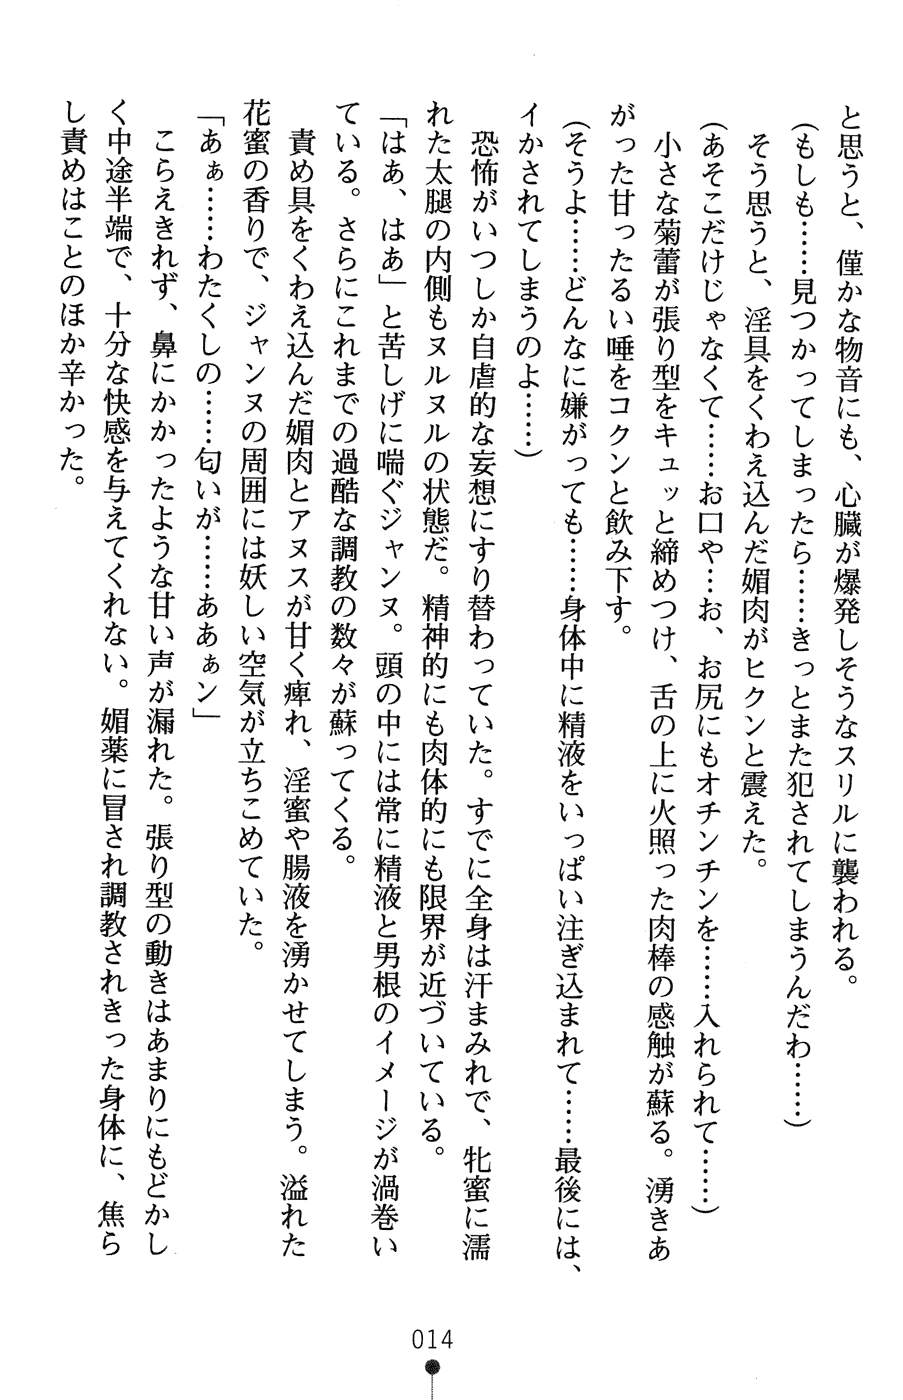 と思うと、僅かな物音にも、心臓が爆発しそうなスリルに襲われる。
(もしも……見つかってしまったら……きっとまた犯されてしまうんだわ……)
そう思うと、淫具をくわえ込んだ媚肉がヒクンと震えた。
(あそこだけじゃなくて……お口や…お、お尻にもオチンチンを……入れられて……)
小さな菊蕾が張り型をキュッと締めつけ、舌の上に火照った肉棒の感触が蘇る。湧きあ
がった甘ったるい唾をコクンと飲み下す。
(そうよ……どんなに嫌がっても……身体中に精液をいっぱい注ぎ込まれて……最後には、
イかされてしまうのよ……)
恐怖がいつしか自虐的な妄想にすり替わっていた。すでに全身は汗まみれで、牝蜜に濡
れた太腿の内側もヌルヌルの状態だ。精神的にも肉体的にも限界が近づいている。
「はあ、はあ」と苦しげに喘ぐジャンヌ。頭の中には常に精液と男根のイメージが渦巻い
ている。さらにこれまでの過酷な調教の数々が蘇ってくる。
責め具をくわえ込んだ媚肉とアヌスが甘く痺れ、淫蜜や腸液を湧かせてしまう。溢れた
花蜜の香りで、ジャンヌの周囲には妖しい空気が立ちこめていた。
「あぁ……わたくしの……匂いが……ああぁン」
こらえきれず、鼻にかかったような甘い声が漏れた。張り型の動きはあまりにもどかし
く中途半端で、十分な快感を与えてくれない。媚薬に冒され調教されきった身体に、焦ら
し責めはことのほか辛かった。
014